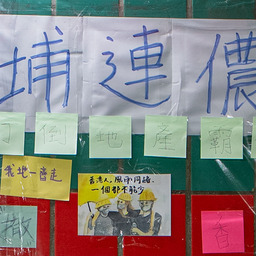 埔連儂
打倒地產霸
我地一齊走
香港人,風雨同路,
一個都不能少
撤